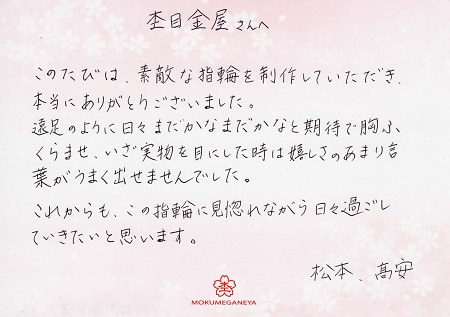 杢目金屋さんへ
このたびは、素敵な指輪を制作していただき、
本当にありがとうございました。
遠足のように日々まだかなまだかなと期待で胸ふ
くらませ、いざ実物を目にした時は嬉しさのあまり言
葉がうまく出せませんでした。
これからも、この指輪に見惚れながら日々過ごし
ていきたいと思います。
松本、高安
MOKUMEGANEYA